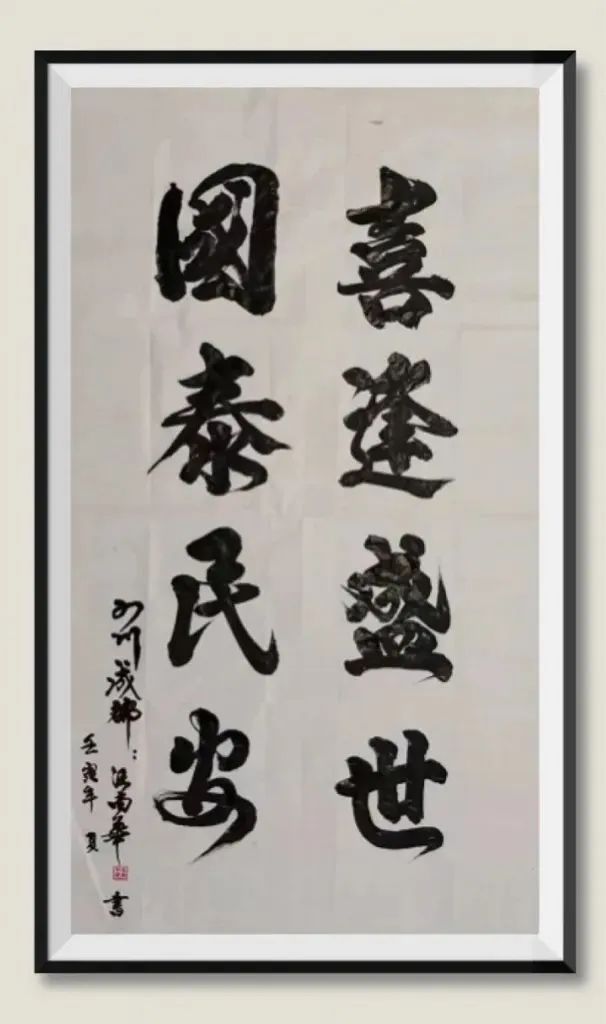 喜逢盛世
國泰民安
四川成都：華書
壬寅年 夏